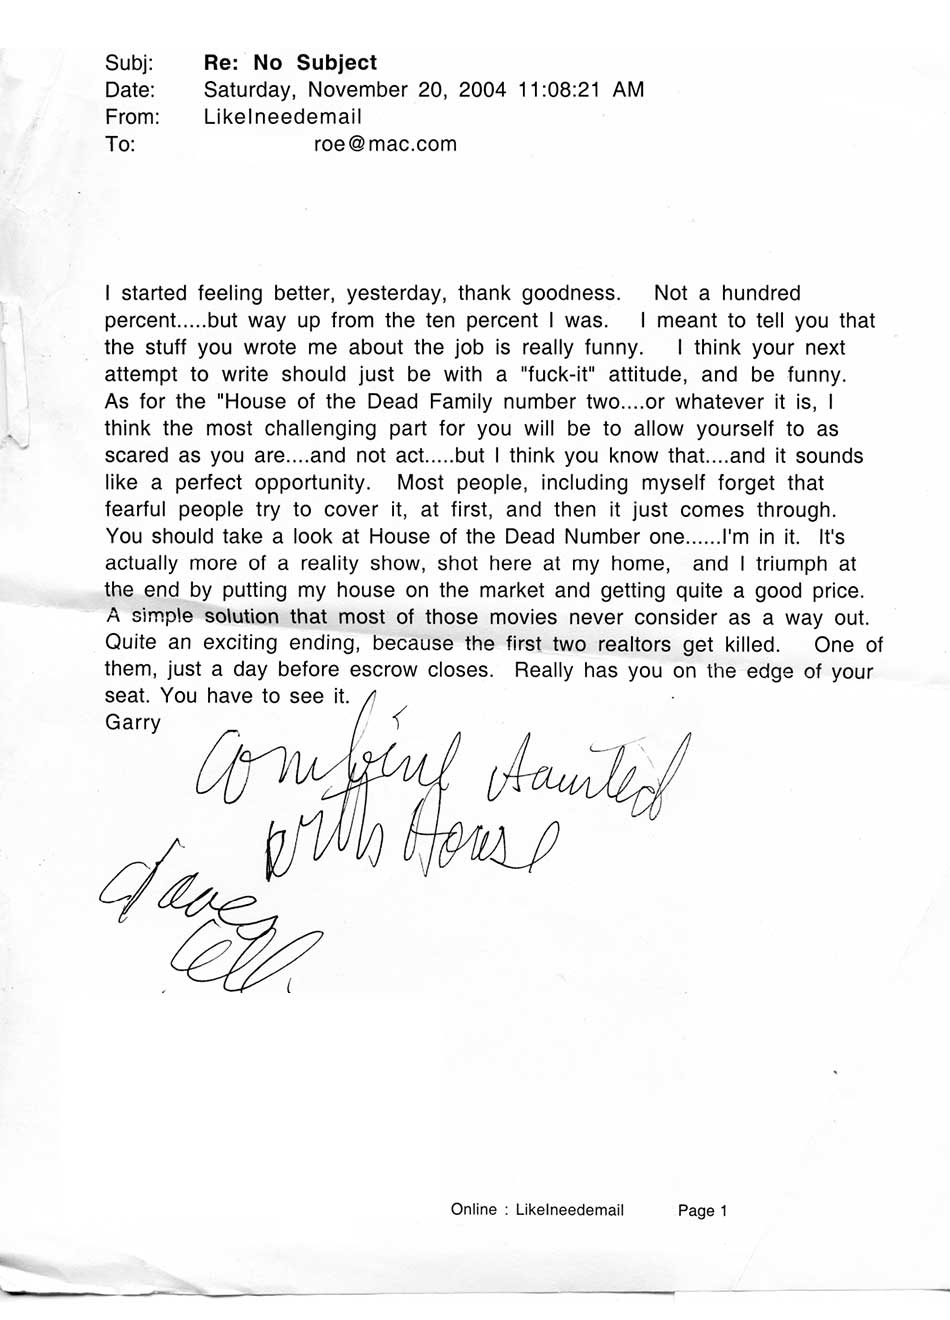 Subj: Re: No Subject
Date: Saturday, November 20, 2004 11:08:21 AM
From: LikeIneedemail
To: roe@mac.com
I started feeling better, yesterday, thank goodness. Not a hundred
percent.....but way up from the ten percent I was. I meant to tell you that
the stuff you wrote me about the job is really funny. I think your next
attempt to write should just be with a "fuck-it" attitude, and be funny.
As for the "House of the Dead Family number two....or whatever it is, I
think the most challenging part for you will be to allow yourself to as
scared as you are....and not act.....but I think you know that....and it sounds
like a perfect opportunity. Most people, including myself forget that
fearful people try to cover it, at first, and then it just comes through.
You should take a look at House of the Dead Number one......I'm in it. It's
actually more of a reality show, shot here at my home, and I triumph at
the end by putting my house on the market and getting quite a good price.
A simple solution that most of those movies never consider as a way out.
Quite an exciting ending, because the first two realtors get killed. One of
them, just a day before escrow closes. Really has you on the edge of your
seat. You have to see it.
Garry
Combine Haunted
with House
Daves
Cell.
Online : LikeIneedemail Page 1